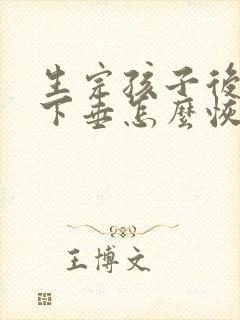 生完孩子後
下垂怎麼恢
王博文